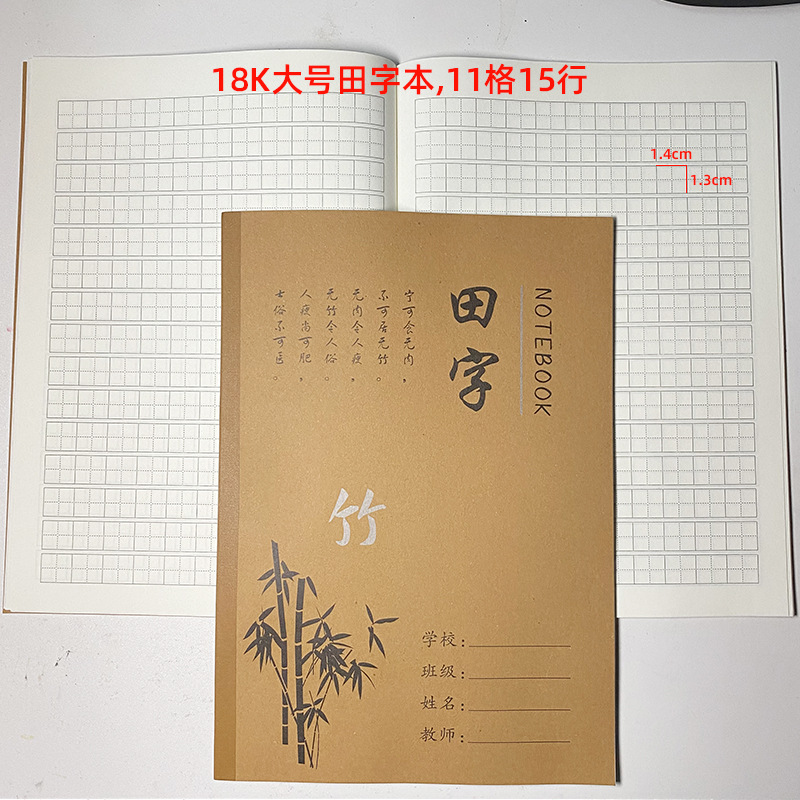 18K大号田字本,11格15行
1.4cm
1.3cm
宁可食无肉，
不可居无竹。
无肉令人瘦，
无竹令人俗。
人瘦尚可肥，
士俗不可医。
田字
NOTEBOOK
竹
学校：
班级：
姓名：
教师：